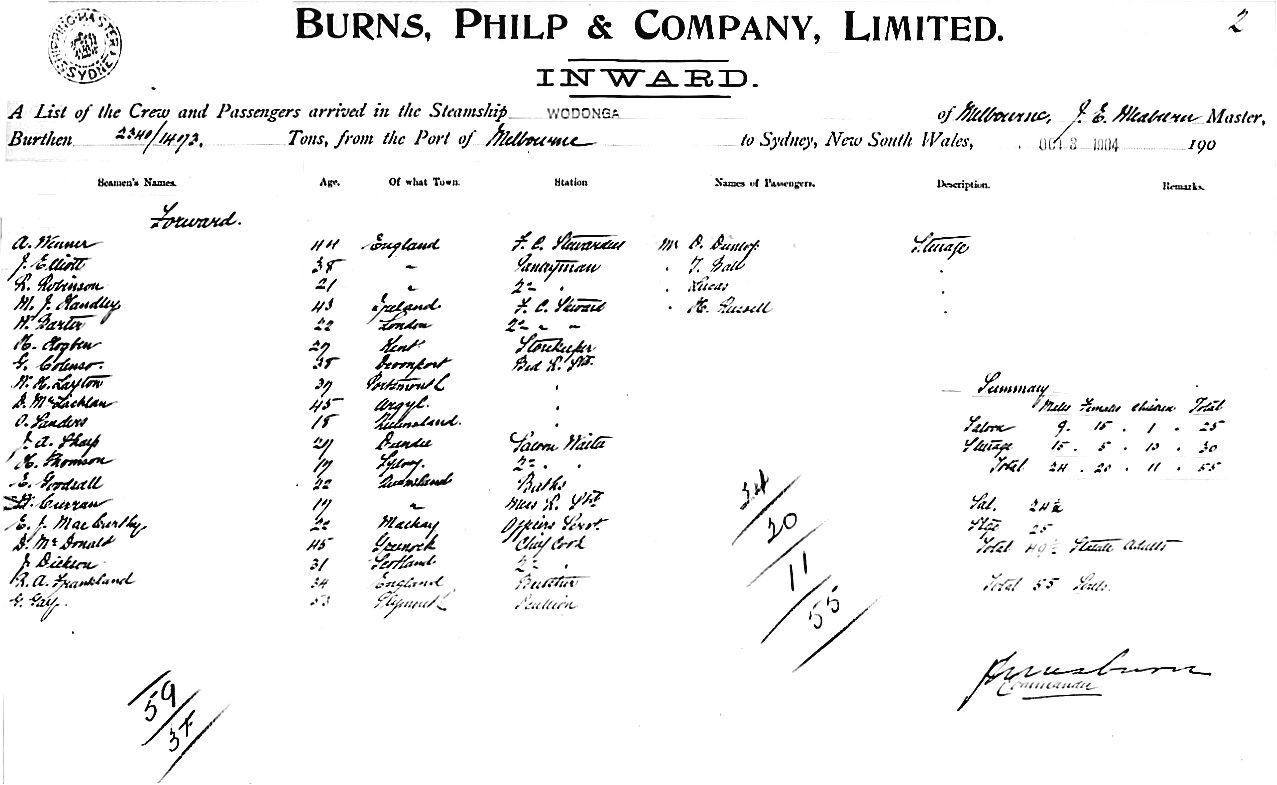 SHIPPING MASTER SYDNEY
2
BURNS, PHILP & COMPANY, LIMITED.
INWARD.
A List of the Crew and Passengers arrived in the Steamship WODONGA of Melbourne, J. E. Meaburn Master,
Burthen 2340/1473. Tons, from the Port of Melbourne to Sydney, New South Wales, OCT 3 1904 190
Seamen's Names. Age. Of what Town. Station Names of Passengers. Description. Remarks.
Forward.
A. Winner 44 England F. C. Stewardess Mr D. Dunlop Steerage
J. Elliott 38 " Pantryman " T. Ball "
R. Robinson 21 " 2nd " " Lucas "
M. J. Handley 43 Ireland F. C. Steward " H. Russell "
W. Baxter 22 London 2nd " "
H. Hogben 27 Kent Storekeeper
G. Colenso 38 Devonport Bed R. Std.
W. H. Layton 37 Portsmouth "
D. McLachlan 45 Argyl. "
O. Sanders 18 Queensland. "
J. A. Sharp 27 Dundee Saloon Waiter
H. Thomson 19 Sydney. 2nd " "
E. Goodsall 22 Queensland Baths
Curran 19 " Mess R. Std
E. J. MacCurthy 22 Mackay Officers Servt.
D. McDonald 45 Greenock Chief Cook
J. Dickson 31 Scotland 2nd "
R. A. Frankland 34 England Butcher
G. Gay. 53 Plymouth
Summary
Males Females Children Total
Saloon 9. 15. 1. 25
Steerage 15. 5. 10. 30
Total 24. 20. 11. 55
Sal. 24½
Stge 25
Total 49½ Statute Adults
Total 55 Souls.
24
20
11
55
59
37
J E Meaburn
Commander